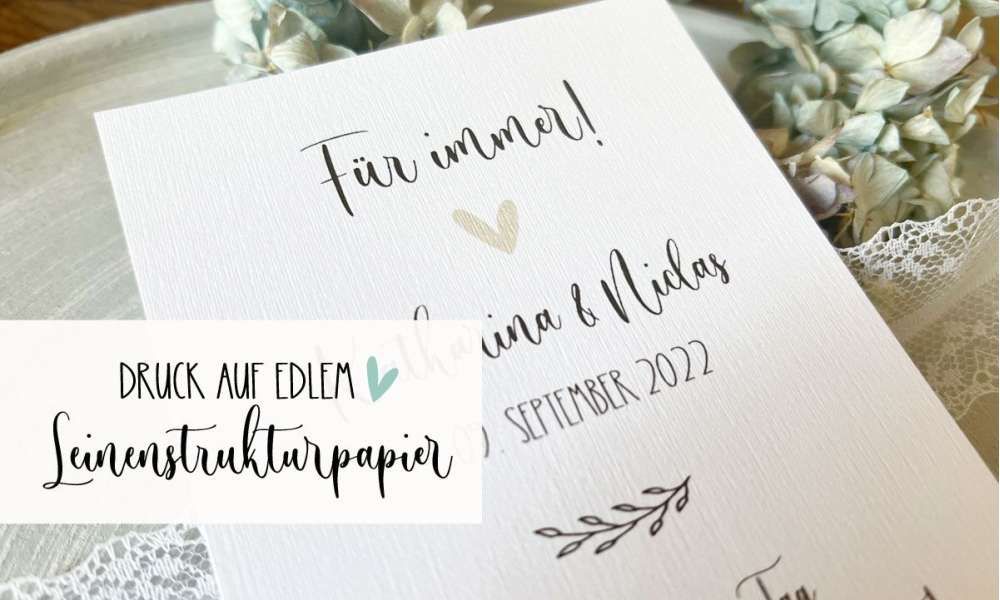 Für immer!
Katharina & Niclas
September 2022
Tag
Druck auf edlem
Leinenstrukturpapier